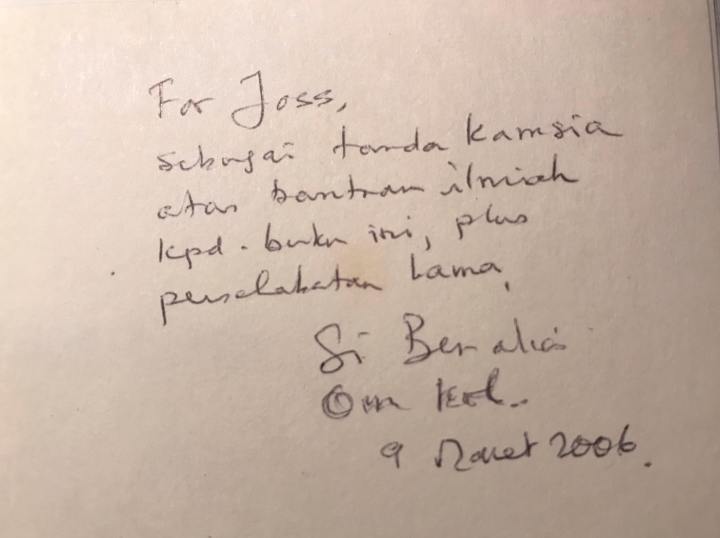 For Joss,
sebagai tanda kamsia
atas bantuan ilmiah
kpd. buku ini, plus
persahabatan lama,
Si Ben alias
Om
9 Maret 2006.